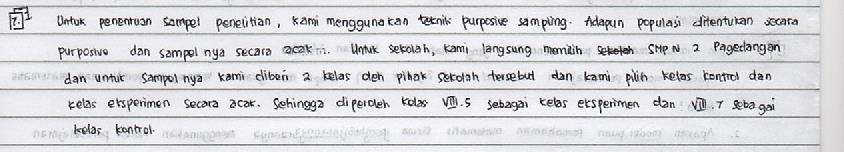 7. Untuk penentuan sampel penelitian, kami menggunakan teknik purposive sampling. Adapun populasi ditentukan secara
purposive dan sampel nya secara acak. Untuk sekolah, kami langsung memilih SMP N 2 Pagedangan
dan untuk sampel nya kami diberi 2 kelas oleh pihak sekolah tersebut dan kami pilih kelas kontrol dan
kelas eksperimen secara acak. Sehingga diperoleh kelas VIII.5 sebagai kelas eksperimen dan VIII.7 sebagai
kelas kontrol.